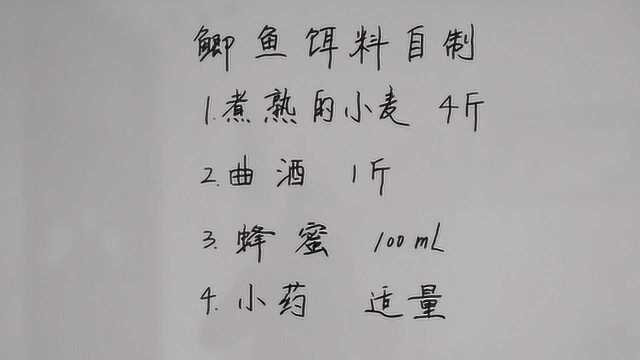 鲫鱼饵料自制
1.煮熟的小麦 4斤
2.曲酒 1斤
3.蜂蜜 100mL
4.小药 适量